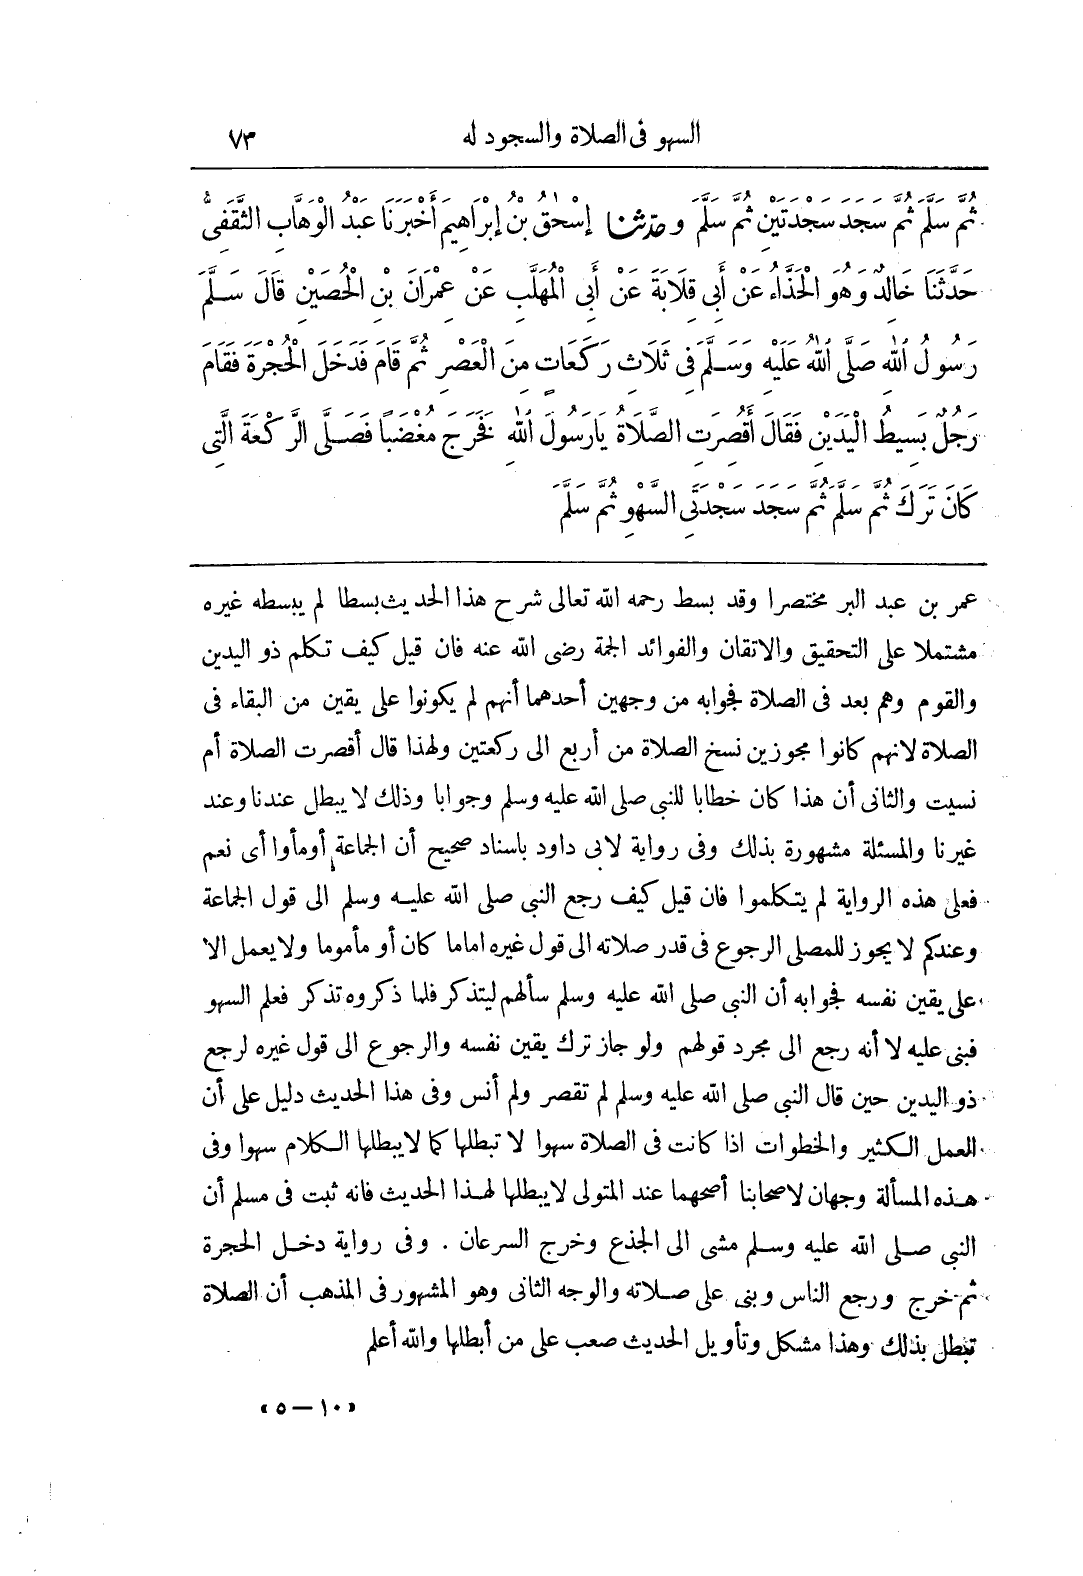 السهو فى الصلاة والسجود له ٧٣
ثُمَّ سَلَّمَ ثُمَّ سَجَدَ سَجْدَتَيْنِ ثُمَّ سَلَّمَ وحدثنا إِسْحٰقُ بْنُ إِبْرَاهِيمَ أَخْبَرَنَا عَبْدُ الْوَهَّابِ الثَّقَفِىُّ
حَدَّثَنَا خَالِدٌ وَهُوَ الْحَذَّاءُ عَنْ أَبِى قِلَابَةَ عَنْ أَبِى الْمُهَلَّبِ عَنْ عِمْرَانَ بْنِ الْحُصَيْنِ قَالَ سَلَّمَ
رَسُولُ اللّٰهِ صَلَّى اللّٰهُ عَلَيْهِ وَسَلَّمَ فِى ثَلَاثِ رَكَعَاتٍ مِنَ الْعَصْرِ ثُمَّ قَامَ فَدَخَلَ الْحُجْرَةَ فَقَامَ
رَجُلٌ بَسِيطُ الْيَدَيْنِ فَقَالَ أَقُصِرَتِ الصَّلَاةُ يَارَسُولَ اللّٰهِ فَخَرَجَ مُغْضَبًا فَصَلَّى الرَّكْعَةَ الَّتِى
كَانَ تَرَكَ ثُمَّ سَلَّمَ ثُمَّ سَجَدَ سَجْدَتَىِ السَّهْوِ ثُمَّ سَلَّمَ
عمر بن عبد البر مختصرا وقد بسط رحمه الله تعالى شرح هذا الحديث بسطا لم يبسطه غيره
مشتملا على التحقيق والاتقان والفوائد الجمة رضى الله عنه فان قيل كيف تكلم ذو اليدين
والقوم وهم بعد فى الصلاة فجوابه من وجهين أحدهما أنهم لم يكونوا على يقين من البقاء فى
الصلاة لانهم كانوا مجوزين نسخ الصلاة من أربع الى ركعتين ولهذا قال أقصرت الصلاة أم
نسيت والثانى أن هذا كان خطابا للنبى صلى الله عليه وسلم وجوابا وذلك لا يبطل عندنا وعند
غيرنا والمسئلة مشهورة بذلك وفى رواية لابى داود باسناد صحيح أن الجماعة أومأوا أى نعم
فعلى هذه الرواية لم يتكلموا فان قيل كيف رجع النبى صلى الله عليه وسلم الى قول الجماعة
وعندكم لا يجوز للمصلى الرجوع فى قدر صلاته الى قول غيره اماما كان أو مأموما ولا يعمل الا
على يقين نفسه فجوابه أن النبى صلى الله عليه وسلم سألهم ليتذكر فلما ذكروه تذكر فعلم السهو
فبنى عليه لا أنه رجع الى مجرد قولهم ولو جاز ترك يقين نفسه والرجوع الى قول غيره لرجع
ذو اليدين حين قال النبى صلى الله عليه وسلم لم تقصر ولم أنس وفى هذا الحديث دليل على أن
العمل الكثير والخطوات اذا كانت فى الصلاة سهوا لا تبطلها كما لا يبطلها الكلام سهوا وفى
هذه المسألة وجهان لاصحابنا أصحهما عند المتولى لا يبطلها لهذا الحديث فانه ثبت فى مسلم أن
النبى صلى الله عليه وسلم مشى الى الجذع وخرج السرعان . وفى رواية دخل الحجرة
ثم خرج ورجع الناس وبنى على صلاته والوجه الثانى وهو المشهور فى المذهب أن الصلاة
تبطل بذلك وهذا مشكل وتأويل الحديث صعب على من أبطلها والله أعلم
«١٠ — ٥»